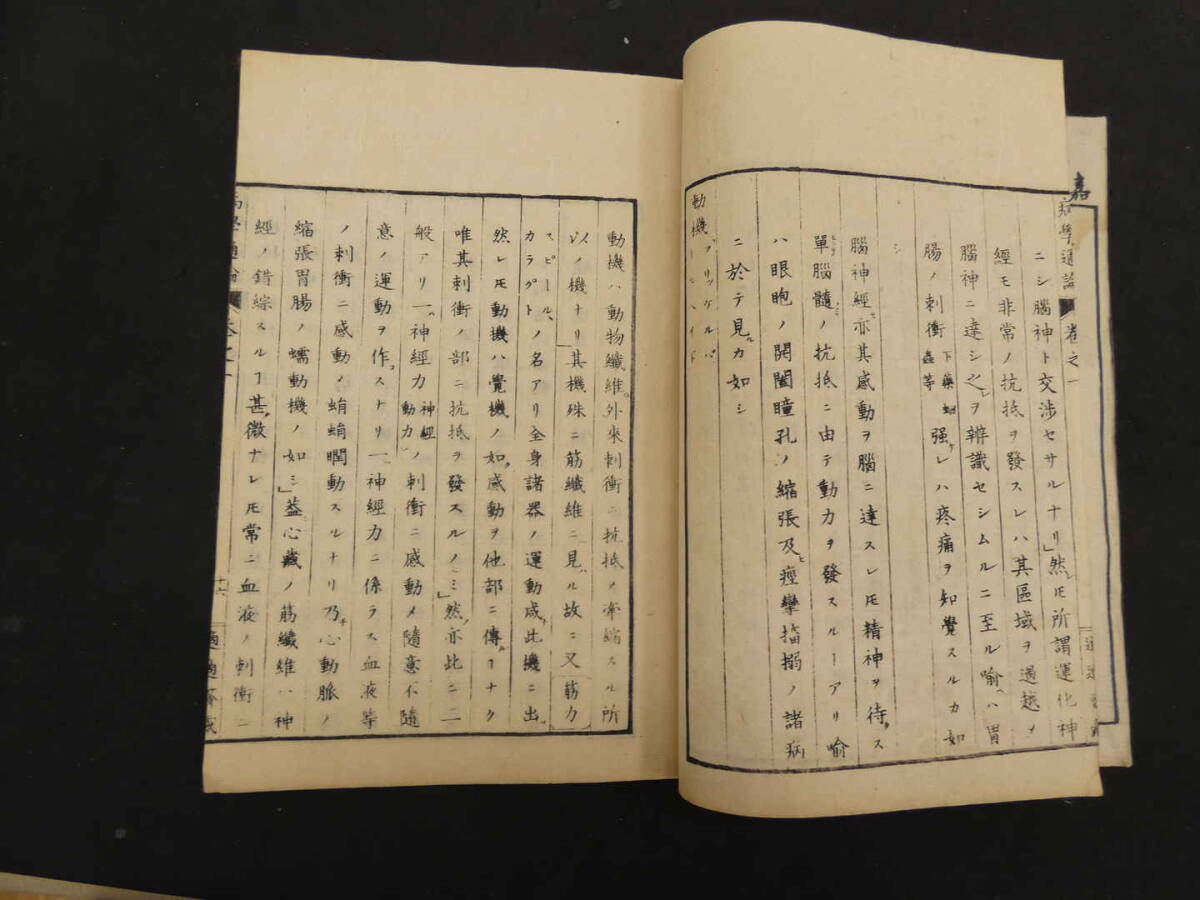 病學通論 卷之一
ニシ腦神ト交渉セサルナリ」然レ𪜈所謂運化神
經モ非常ノ抗抵ヲ發スレハ其區域ヲ過越ヲ
腦神ニ達シ之レヲ辨識セシムルニ至ル喻ヘハ胃
腸ノ刺衝下藥蚘蟲等強ケレハ疼痛ヲ知覺スルカ如
シ
腦神經モ亦其感動ヲ腦ニ達スレ𪜈精神ヲ待タス
單ヒトリ腦髓ノミ抗抵ニ由テ動力ヲ發スルヿアリ喻
ハ眼胞ノ開闔瞳孔ノ縮張及ヒ痙攣搐搦ノ諸病
ニ於テ見ルカ如シ
動機プリッケルバ
動機ハ動物纖維外來刺衝ニ抗抵メ牽縮スル所
以ノ機ナリ其機殊ニ筋纖維ニ見ハル故ニ又筋力
スピールカラグトノ名アリ全身諸器ノ運動咸ナ此機ニ出ツ
然レ𪜈動機ハ覺機ノ如ク感動ヲ他部ニ傳フヿナク
唯其刺衝ノ部ニ抗抵ヲ發スルノミ」然ノ亦此ニ二
般アリ一ハ神經力神經動力ノ刺衝ニ感動メ隨意不隨
意ノ運動ヲ作ナスナリ一ハ神經力ニ係ラス血液等
ノ刺衝ニ感動メ蝟蝟瞤動スルナリ乃チ心動脈ノ
縮張胃腸ノ蠕動機ノ如シ」蓋心藏ノ筋纖維ハ神
經ノ錯綜スルヿ甚タ微ナレ𪜈常ニ血液ノ刺衝ニ
病學通論 卷之一 十六